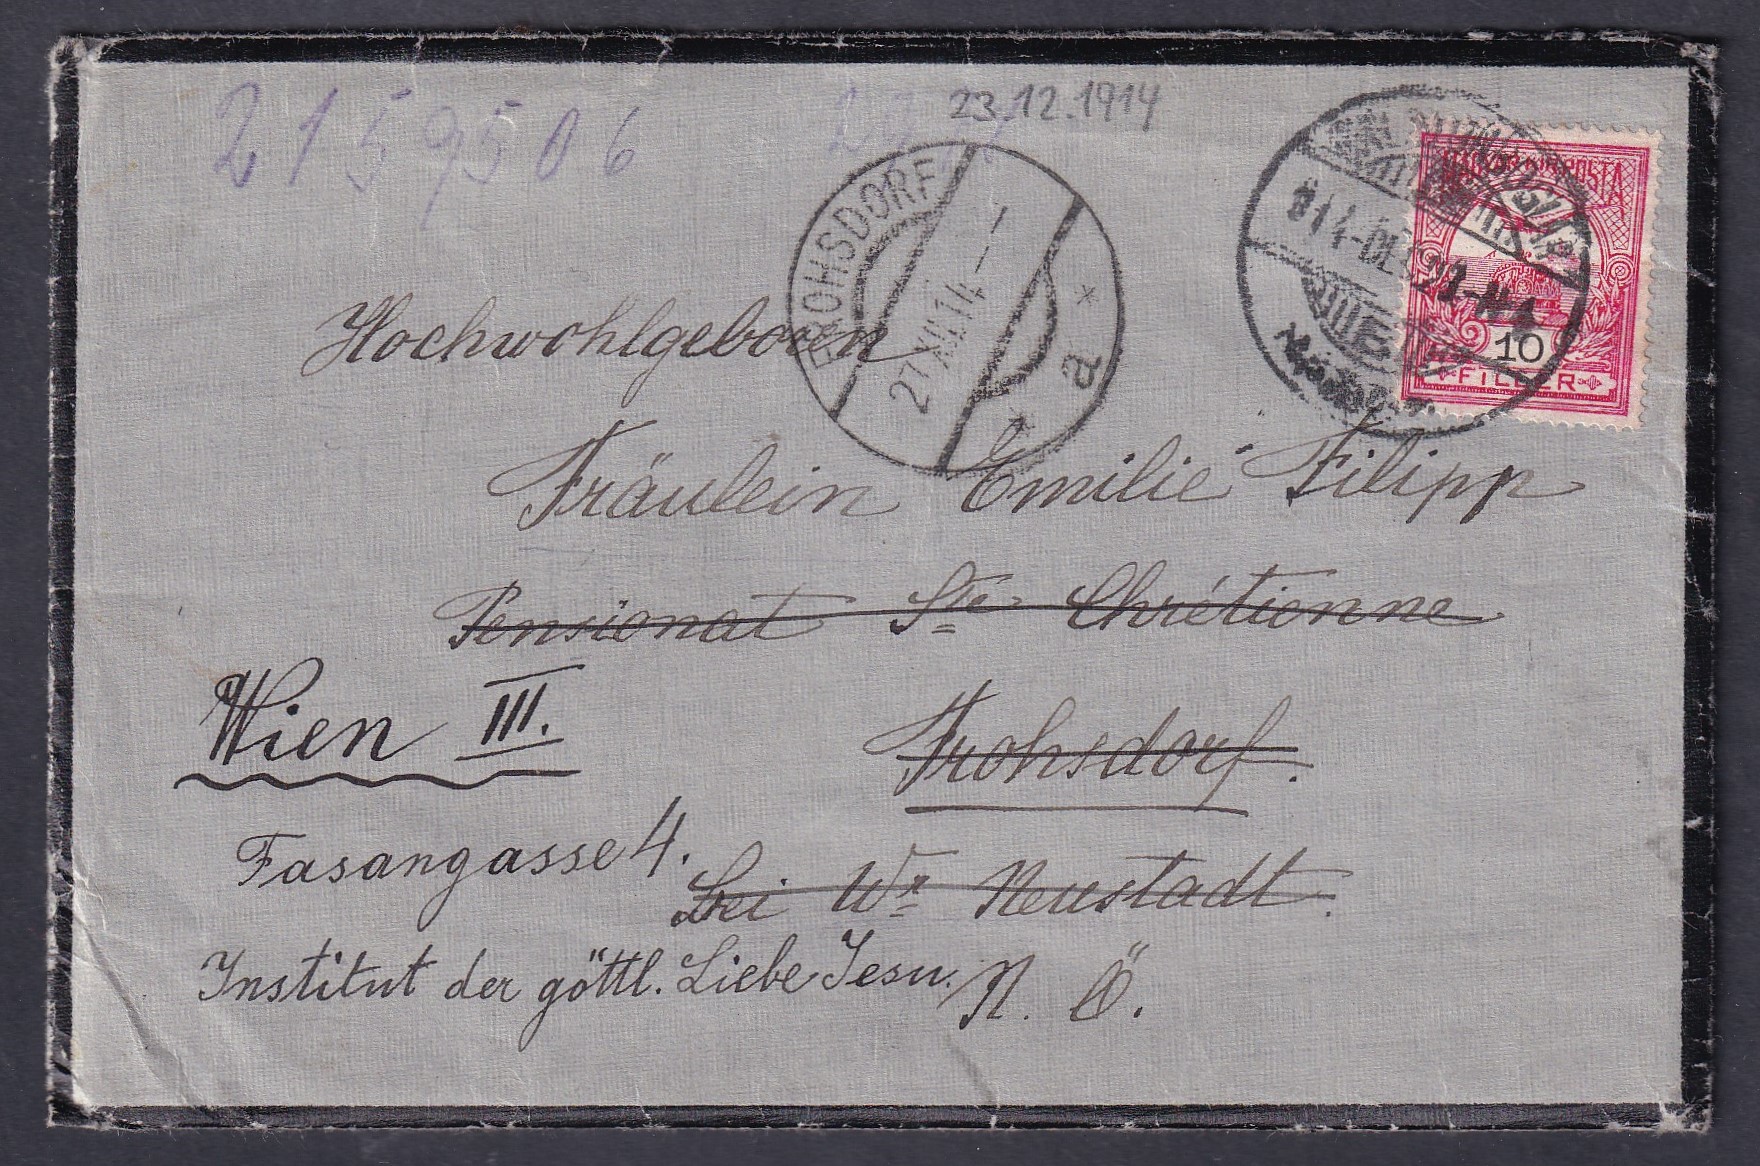 2159506
23.12.1914
FROHSDORF
27.XII.14
a
MAGYAR KIR. POSTA
914-DEC
10
FILLER
Hochwohlgeboren
Fräulein Emilie Filipp
Pensionat Ste Chrétienne
Frohsdorf.
bei Wr Neustadt.
N. Ö.
Wien III.
Fasangasse 4.
Institut der göttl. Liebe Jesu.